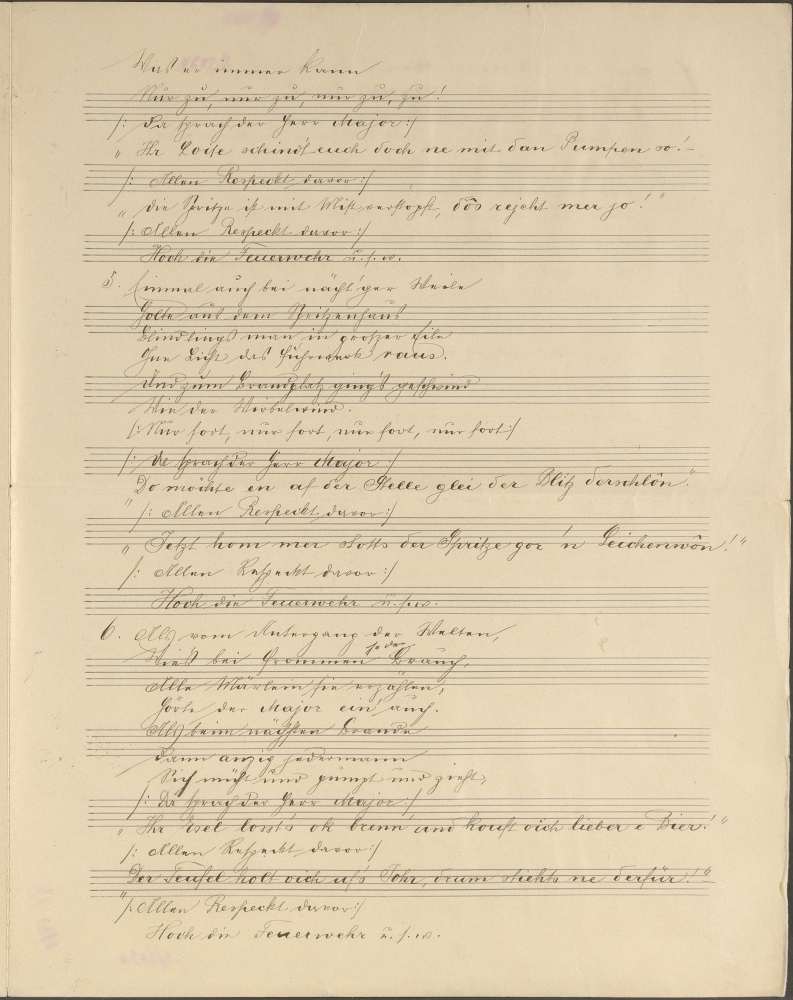 Was er immer kann
Nur zu, nur zu, nur zu, zu!
/: Da sprach der Herr Major :/
„ Ihr Loite schind't euch doch ne mit dan Pumpen so!
/: Allen Respeckt davor :/
„ Die Spritze ist mit Mist verstopft, dôs rejcht mer jo! “
/: Allen Respeckt davor :/
Hoch die Feuerwehr u. s. w.
5. Einmal auch bei nächt'ger Weile
Holte aus dem Spritzenhaus
Blindlings man in grosser Eile
Ohne Licht das Fuhrwerk raus.
Und zum Brandplatz ging's geschwind
Wie der Wirbelwind.
/: Nur fort, nur fort, nur fort, nur fort :/
/: Da sprach der Herr Major :/
„ Do möchte en af der Stelle glei der Blitz derschlôn“.
/: Allen Respeckt davor :/
„ Jetzt hom mer stotts der Spritze gor 'n Leichenwôn! “
/: Allen Respeckt davor :/
Hoch die Feuerwehr u. s. w.
6. Als vom Untergang der Welten,
Wie's bei Frommen so der Brauch,
Alle Märlein sie erzählen,
Hörte der Major ein' auch.
Als beim nächsten Brande
Sich müht und pumpt und zieht,
/: Da sprach der Herr Major :/
„ Ihr Esel losst's ok brenn' und kouft oich lieber e Bier! “
/: Allen Respeckt davor :/
„ Der Teufel holt oich uf's Johr, drum stiehts ne derfür! “
/: Allen Respeckt davor :/
Hoch die Feuerwehr u. s. w.